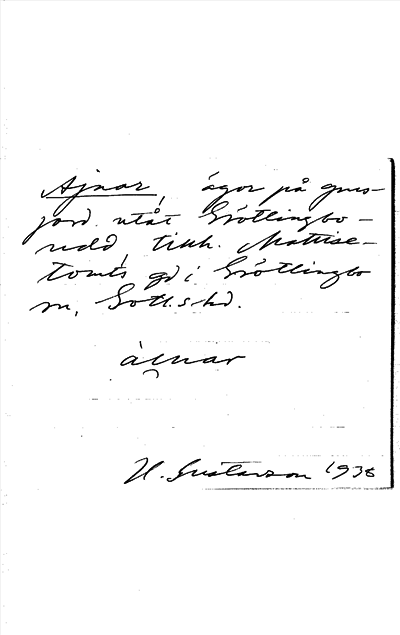 Ajnar, ägor på grus-
jord utåt Grötlingbo-
udd, tillh. Mattise-
tomts gd i Grötlingbo
sn, Gotl. s. hd.
ainar
H. Gustavson 1938